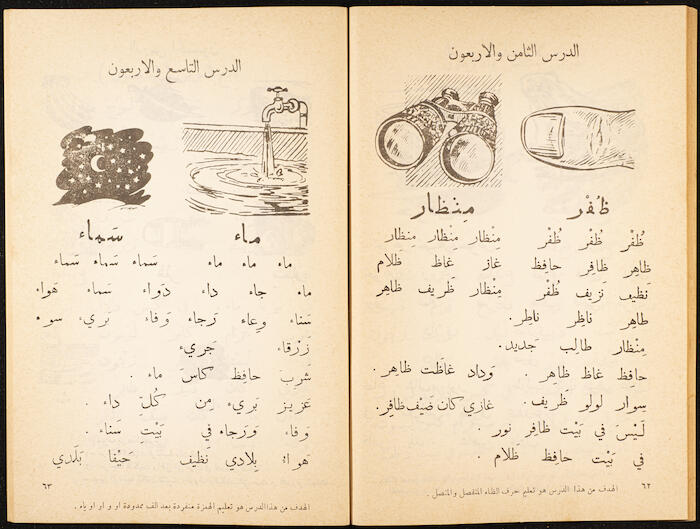 الدرس الثامن والاربعون
ظُفْر مِنْظار
ظُفْر ظُفْر ظُفْر مِنْظار مِنْظار مِنْظار
ظاهِر ظافِر حافِظ غاز غاظ ظَلام
نَظيف نَزيف ظُفْر مِنْظار ظَريف ظاهر
طاهِر ناظِر ناطِر.
مِنْظار طالِب جَديد.
حافِظ غاظ ظاهِر . وَداد غاظَت ظاهِر.
سِوار لولو ظَريف . غازي كان ضَيْف ظافِر.
لَيْسَ في بَيْت ظافِر نور .
في بَيْت حافِظ ظَلام .
الهدف من هذا الدرس هو تعليم حرف الظاء المنفصل والمتصل .
٦٢
الدرس التاسع والاربعون
ماء سَماء
ماء ماء ماء سَماء سَماء سَماء
ماء جاء داء دَواء سَماء هَواء
سَناء وِعاء رَجاء وَفاء بَريء سوء
زَرْقاء جَريء
شَرِبَ حافِظ كَاسَ ماء .
عَزيز بَريء مِن كُلِّ داء .
وَفاء وَرَجاء في بَيْتِ سَناء .
هَواء بِلادي نَظيف حَيْفا بَلَدي
٦٣
الهدف من هذا الدرس هو تعليم الهمزة منفردة بعد الف ممدودة او و او ياء .